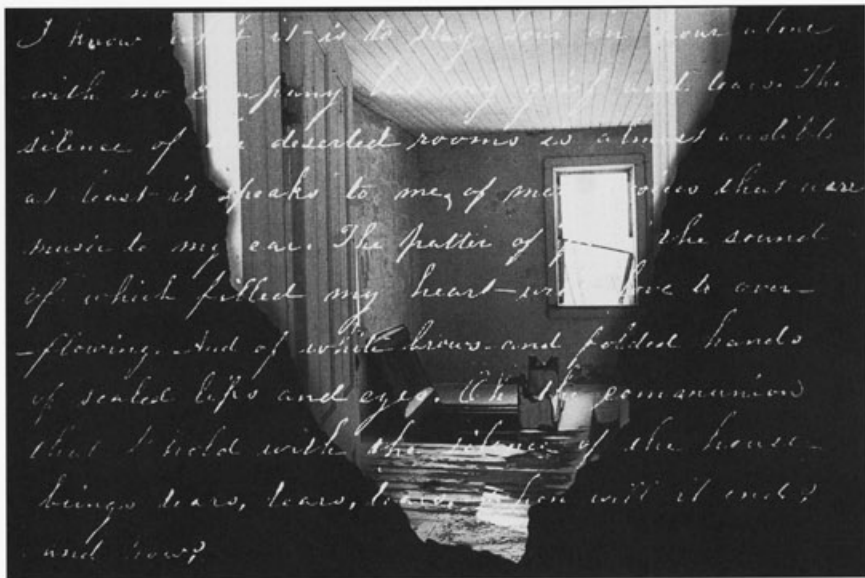 I know it is to stay hour an hour alone
with no company but my grief and tears. The
silence of the deserted rooms is almost audible
at least it speaks to me, of voices that were
music to my ear. The patter of the sound
of which filled my heart with love to over-
-flowing. And of white brows and folded hands
of sealed lips and eyes. Oh the communion
that I hold with the silence of the house
brings tears, tears, tears, when will it end?
and how?